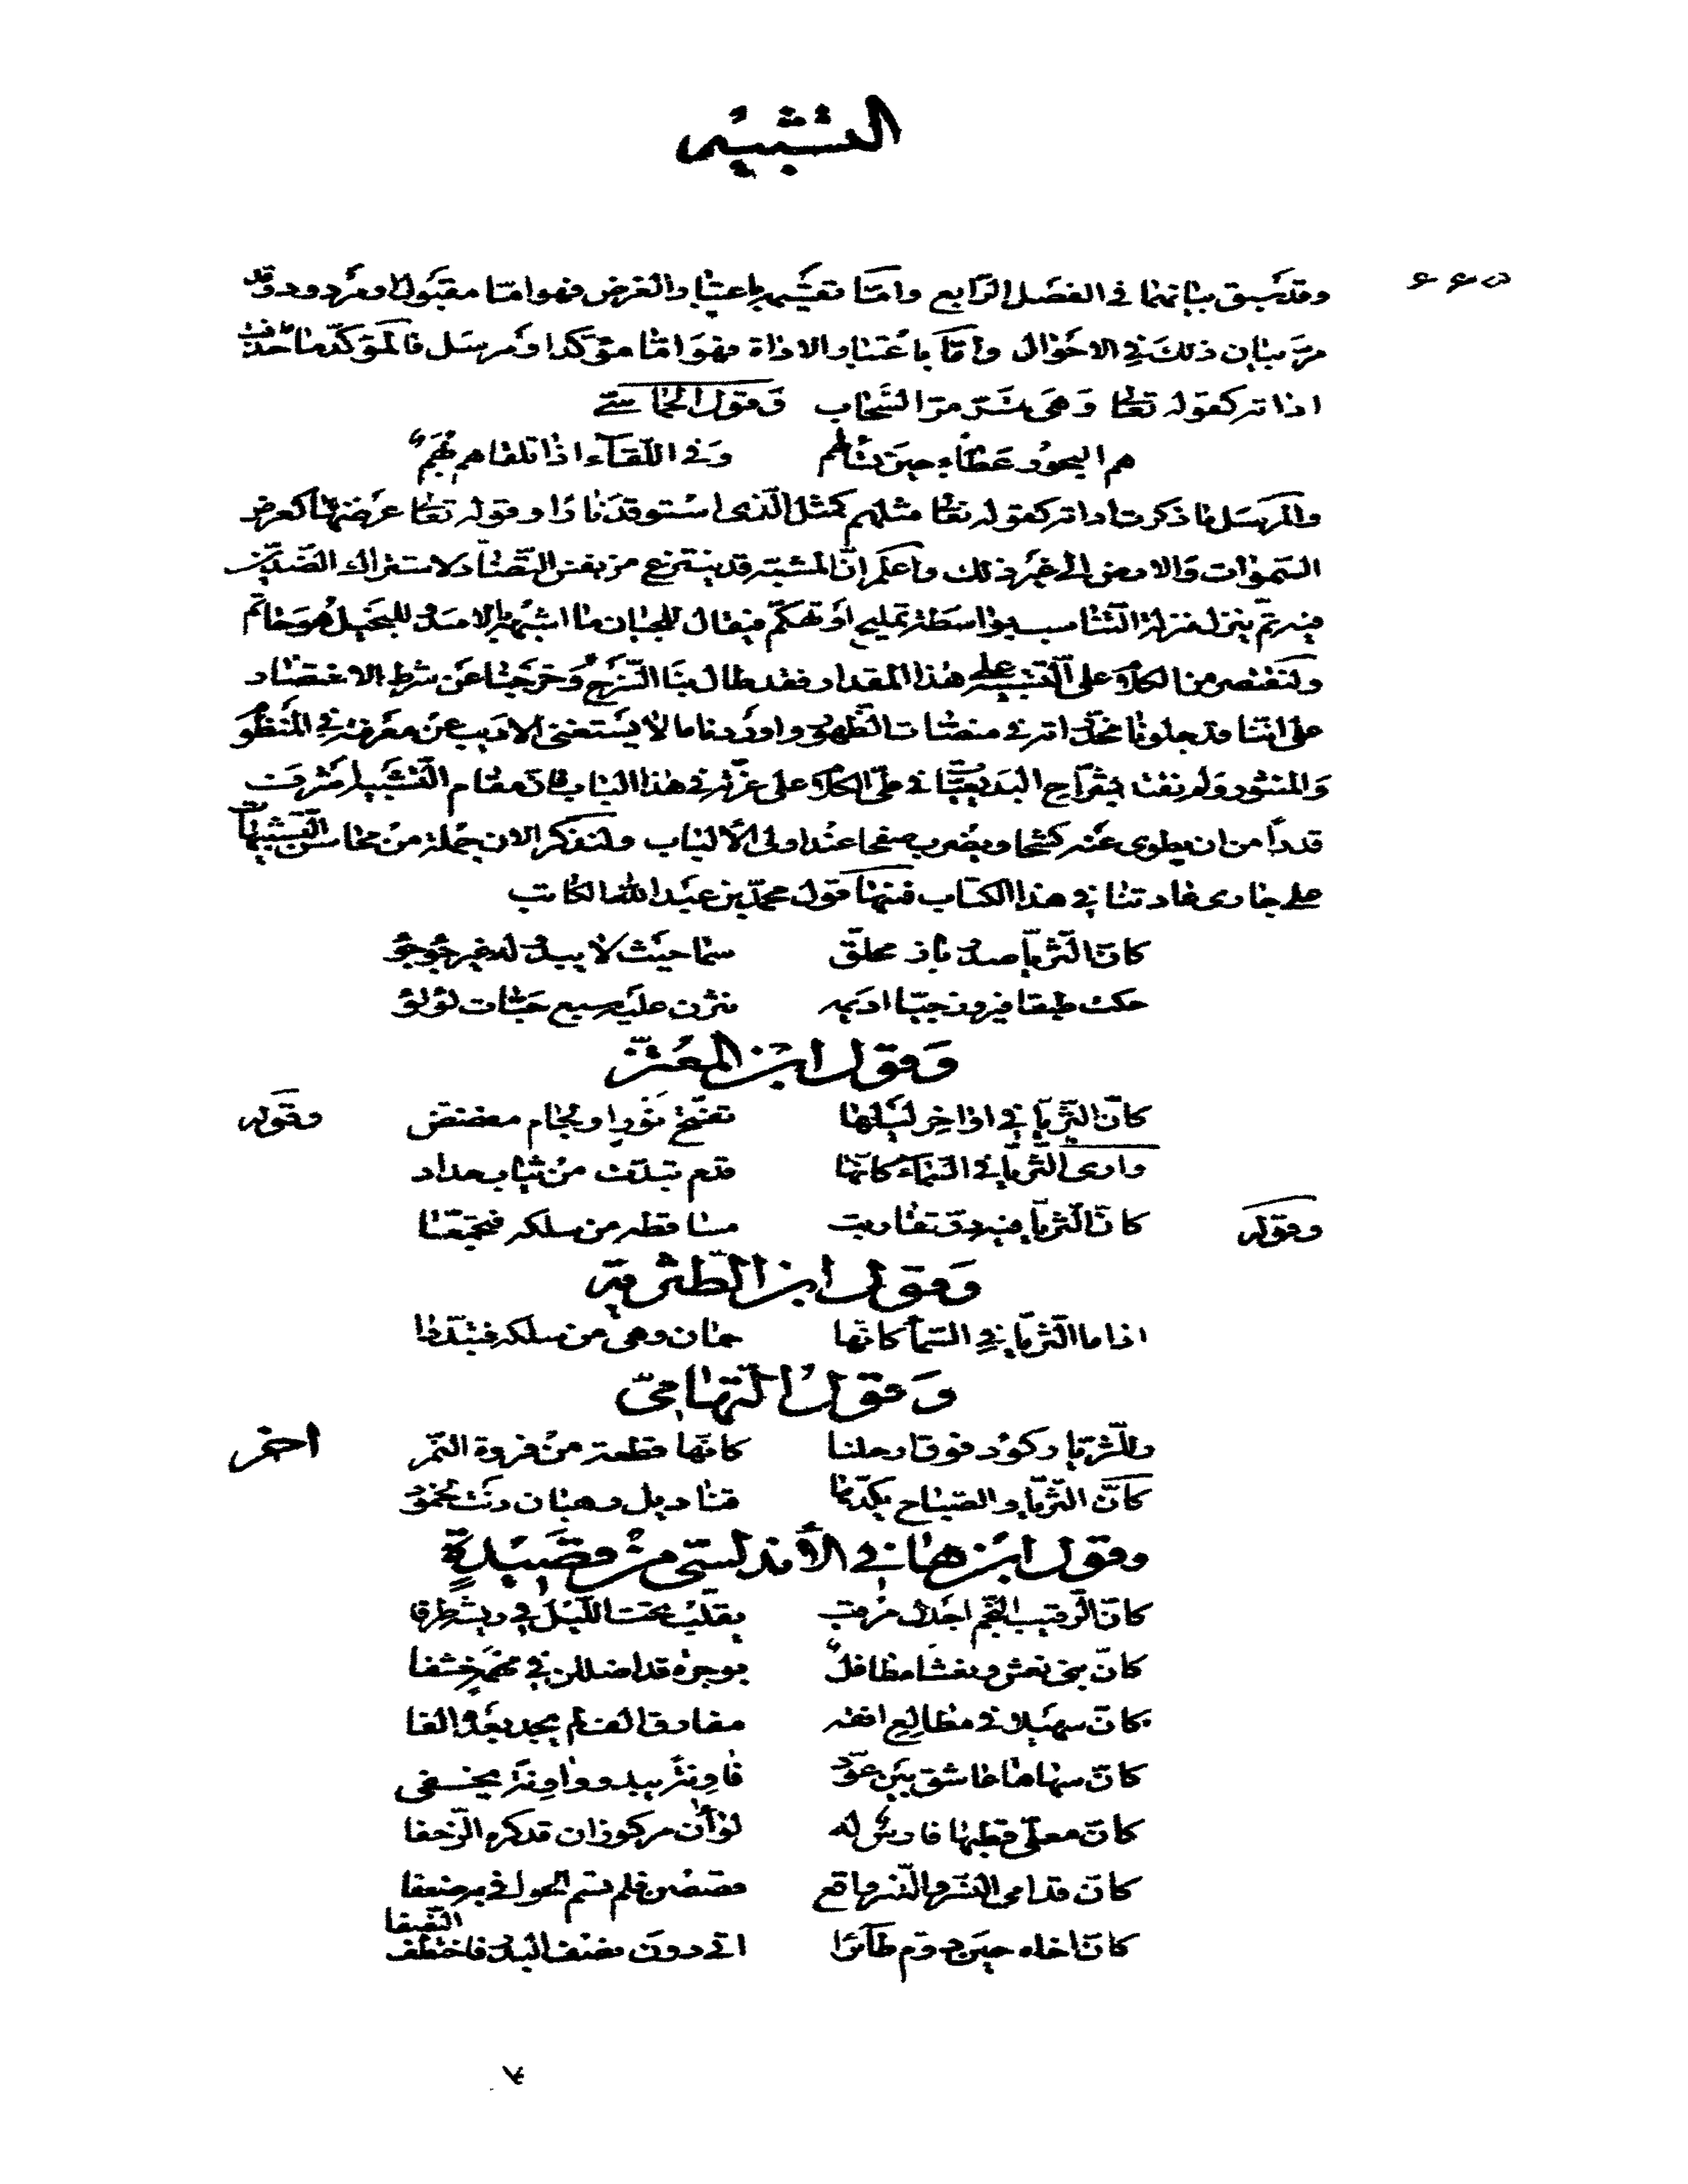 التشبيه
وقد سبق بيانهما في الفصل الرابع واما تقسيمه باعتبار الغرض فهو اما مقبول او مردود وقد
مر بيان ذلك في الاحوال واما باعتبار الاداة فهو اما مؤكد او مرسل فالمؤكد ما حذفت
اداته كقوله تعالى وهي تمر مر السحاب وقول الحماسي
هم البحور عطاء حين تسألهم وفي اللقاء اذا تلقاهم بهم
والمرسل ما ذكرت اداته كقوله تعالى مثلهم كمثل الذي استوقد نارا وقوله تعالى عرضها كعرض
السموات والارض الى غير ذلك واعلم ان المشبه قد ينتزع من نفس التضاد لاشتراك الضدين
فيه ثم ينزل منزلة التناسب بواسطة تمليح او تهكم فيقال للجبان ما اشبهه بالاسد وللبخيل هو حاتم
ولنقتصر من الكلام على التشبيه على هذا المقدار فقد طال بنا الشرح وخرجنا عن شرط الاقتصاد
على اننا قد جلونا مخدراته في منصات الظهور واوردنا ما لا يستغني الاديب عن معرفته في المنظوم
والمنثور ولم نفت بشراح البديعيات في طي الكلام على غره في هذا الباب فان مقام التشبيه اشرف
قدرا من ان يطوى عنه كشحا ويضرب صفحا عند اولى الألباب ولنذكر الان جملة من محاسن التشبيهات
على جاري عادتنا في هذا الكتاب فمنها قول محمد بن عبد الله الكاتب
كان الثريا صدر باز محلق سما حيث لا يبدو له غير جؤجؤ
حكت طبقا فيروزجيا اديمه نثرن عليه سبع حبات لؤلؤ
وقول ابن المعتز
كان الثريا في اواخر ليلها تفتح نور او لجام مفضض وقوله
وارى الثريا في السماء كانها قدم تبدت من ثياب حداد
وقوله كان الثريا فيه در تقاربت مساقطه من سلكه فتجمعا
وقول ابن الطثرية
اذا ما الثريا في السماء كانها جمان وهى من سلكه فتبددا
وقول التهامي
وللثريا ركود فوق ارحلنا كانها قطعة من فروة النمر اخر
كان الثريا والصباح يكدها قناديل رهبان دنت لخمود
وقول ابن هاني الأندلسي من قصيدة
كان الرقيب النجم اجدل مرقب يقلب تحت الليل في ريشه طرفا
كان بني نعش ونعشا مطافل بوجرة قد اضللن في مهمه خشفا
كان سهيلا في مطالع افقه مفارق الف لم يجد بعده الفا
كان سهاها عاشق بين عود فاونة يبدو واونة يخفى
كان معلى قطبها فارس له لواان مركوزان قد كره الزحفا
كان قدامى النسر والنسر واقع قصصن فلم تسم الخوافي به ضعفا
كان اخاه حين دوم طائرا اتى دون نصف البدر فاختطف النصفا